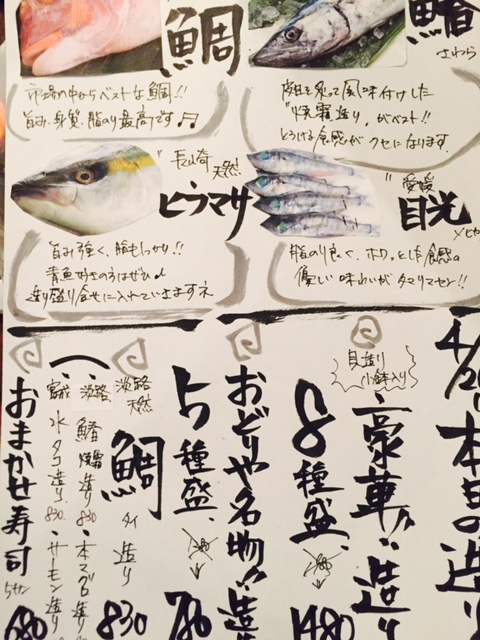 鯛
市場の中からベストな鯛!!
旨み、身質、脂のり最高です♬
鰆
さわら
皮目を炙って風味付けした
"焼霜造り"がベスト!!
とろける食感がクセになります。
"長崎 天然
ヒラマサ
旨み強く、脂もしっかり!!
青魚好きの方はぜひ♪
造り盛り合せに入れていますネ
"愛媛
目光
メヒカ
脂のり良く、ホワッとした食感の
優しい味わいがタマリマセン!!
4/2 本日の造り
貝造り
小鉢入り
豪華!!造り
8種盛
1480
おどりや名物!!造
5種盛
780
淡路
天然
鯛
タイ造り
830
淡路 鰆焼霜造り 830
本マグロ造り
宮城 水タコ造り 830
サーモン造り
おまかせ寿司
680